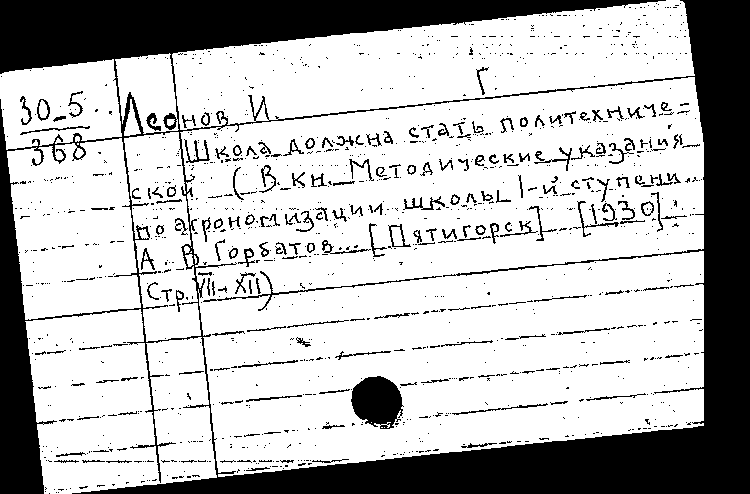 30-5
368
Г
Леонов, И.
Школа должна стать политехниче=
ской (В кн. Методические указания
по агрономизации школы I-й ступени...
А. В. Горбатов... [Пятигорск] [1930].
Стр. VII-XII)